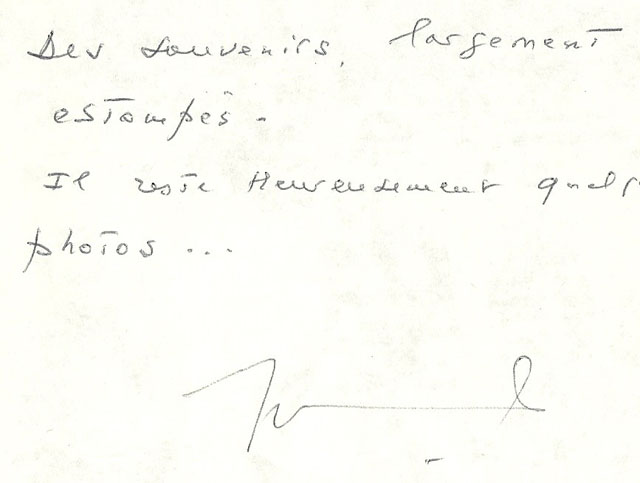 Des souvenirs, largement
estompés.
Il reste Heureusement quelq
photos ...